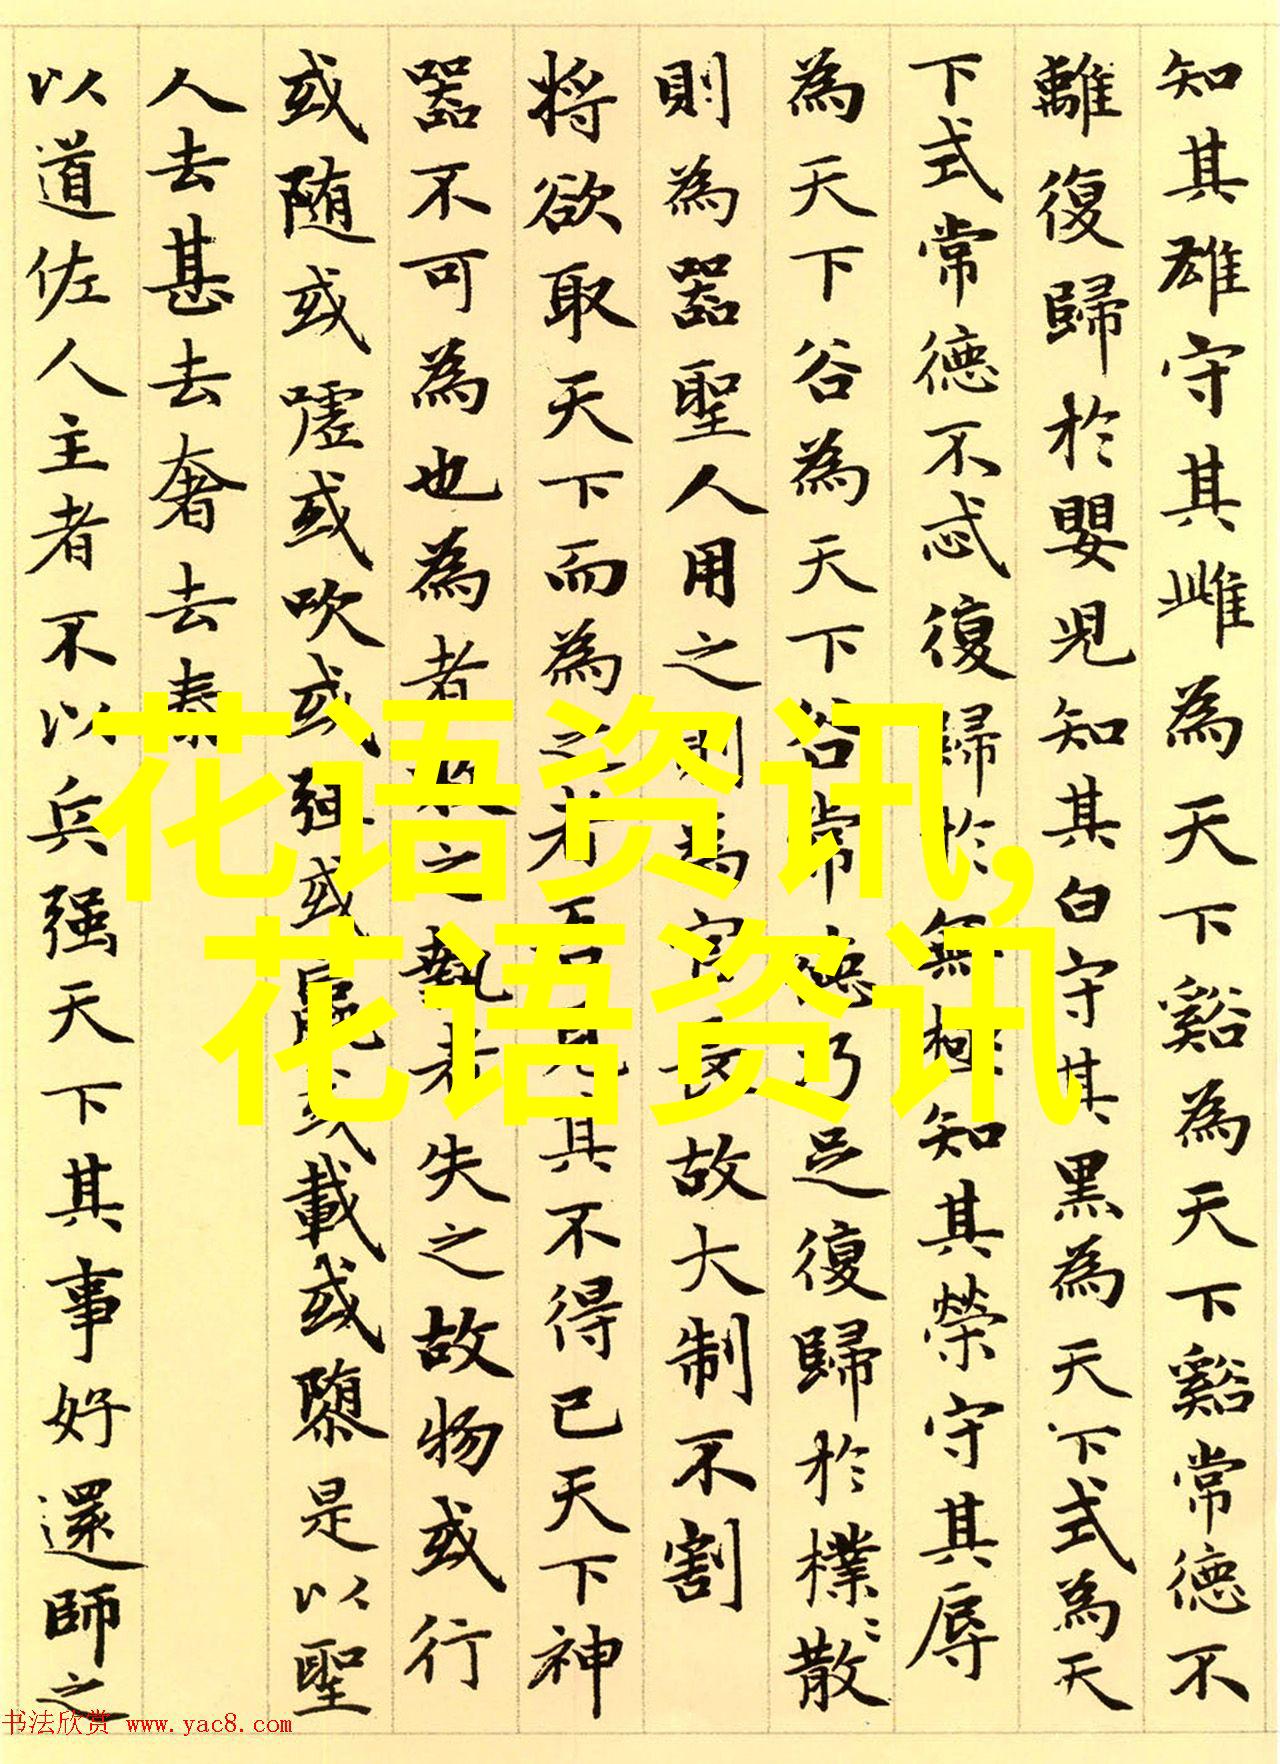 知其雄守其雌為天下谿為天下谿常德不
離復歸於嬰兒知其白守其黑為天下式為天
下式常德不忒復歸於無極知其榮守其辱
為天下谷為天下谷常德乃足復歸於樸〻散
則為器聖人用之則為官長故大制不割
将欲取天下而為之者吾見其不得已天下神
器不可為也為者敗之執者失之故物或行
或随或嘘或吹或强或羸或載或隳是以聖
人去甚去奢去泰
以道佐人主者不以兵强天下其事好還師之
花语资讯,
花语资讯
书法欣赏 www.yac8.com